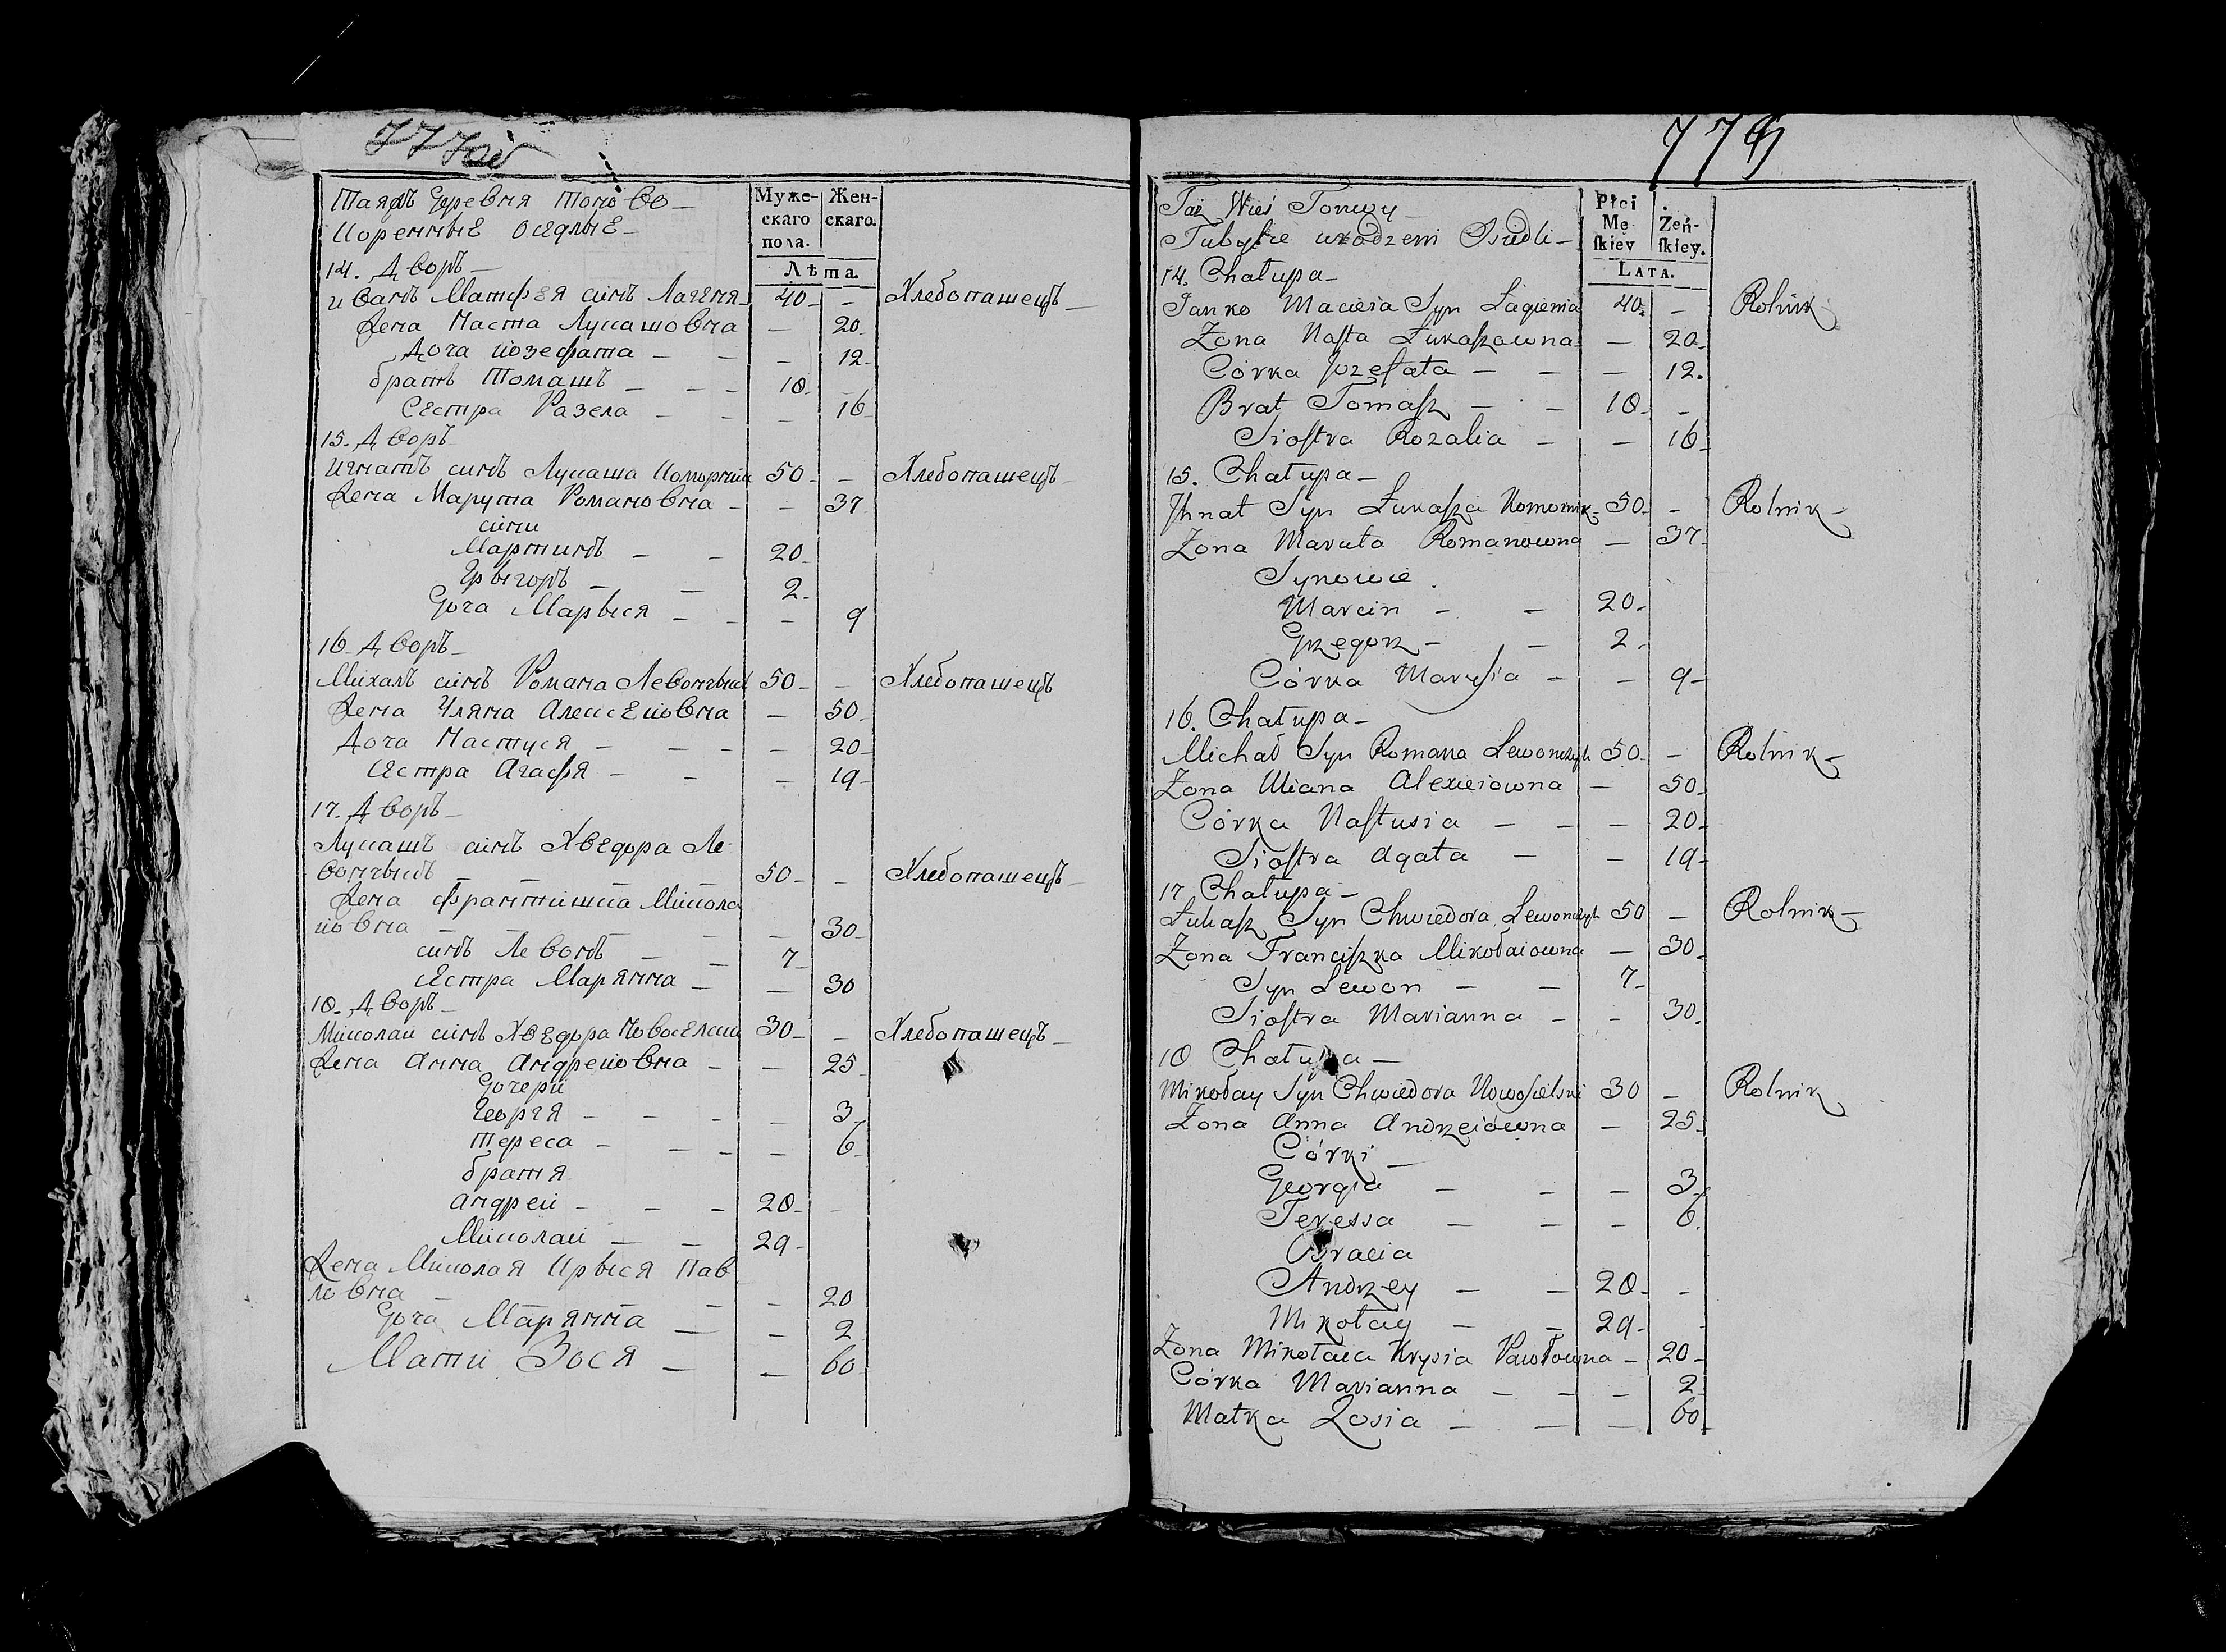 777
Таяжъ Деревня Тоново
Коренные оседлые
Муже-
скаго
пола.
Жен-
скаго.
Лѣта.
14. Дворъ
иванъ Матфея синъ Лагемя 40 - Хлебопашецъ
Жена Наста Лукашовна - 20
Доча иозефата - 12
братъ Томашъ 18 -
Сестра Разела - 16
15. Дворъ
Игнатъ синъ Лукаша Коморник 50 - Хлебопашецъ
Жена Марута Романовна - 37
сини
Мартинъ 20
Грыгоръ 2
Доча Марыся - 9
16 Дворъ
Михалъ синъ Романа Левончыкъ 50 - Хлебопашецъ
Жена Уляна Алексеновна - 50
Доча Настуся - 20
Сестра Агафя - 19
17. Дворъ
Лукашъ синъ Хведора Ле-
вончыкъ 50 - Хлебопашецъ
Жена Франтишка Микола
йовна - 30
синъ Левонъ 7
Сестра Марянна - 30
18. Дворъ
Миколаи синъ Хведора Новоселски 30 - Хлебопашецъ
Жена Анна Андреиовна - 25
Дочери
Георгя - 3
Тереса - 6
братя
Андреи 28 -
Миколаи 29
Жена Миколая Крыся Пав
ловна - 20
Доча Марянна - 2
Мати Зося - 60
779
Taż Wieś Tonwy
Tubylce urodzeni Osiedli
Płci
Mę
skiey
Żeń-
skiey.
LATA.
14. Chałupa
Janko Macieia Syn Łagienia 40 - Rolnik
Żona Nasta Łukaszowna - 20
Córka Jozefata - 12.
Brat Tomasz 18 -
Siostra Rozalia - 16
15. Chałupa
Ihnat Syn Łukasza Komornik 50 - Rolnik
Żona Maruta Romanowna - 37
Synowie
Marcin 20
Grzegorz 2
Córka Marysia - 9
16. Chałupa
Michał Syn Romana Lewonczyk 50 - Rolnik
Żona Uliana Alexieiowna - 50
Córka Nastusia - 20
Siostra Agata - 19
17 Chałupa
Łukasz Syn Chwiedora Lewonczyk 50 - Rolnik
Żona Franciszka Mikołaiowna - 30
Syn Lewon 7
Siostra Marianna - 30
18 Chałupa
Mikołay Syn Chwiedora Nowosielski 30 - Rolnik
Żona Anna Andrzeiówna - 25
Córki
Georgia - 3
Teressa - 6
Bracia
Andrzey 28 -
Mikołay 29 -
Żona Mikołaia Krysia Pawłowna - 20
Córka Marianna - 2
Matka Zosia - 60